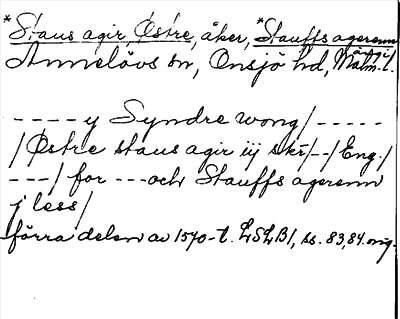 *Staus agir, Østre, åker, *Stauffs agerenn
Annelövs sn, Onsjö hd, Malm. l.
---- y Syndre wong/-----
/Østre staus agir iij skr/--/Eng./
---/ for ---och Stauffs agerenn
j less/
förra delen av 1570-t. LSLB1, ss. 83, 84. orig.